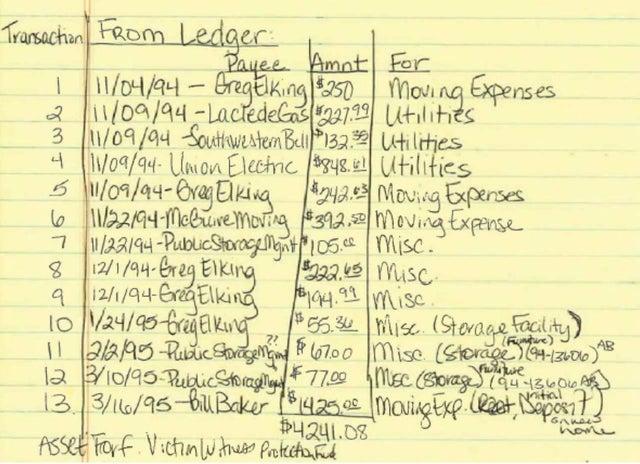 Transaction From Ledger:
Payee Amnt For
1 11/04/94 - Greg Elking $250 Moving Expenses
2 11/09/94 - Laclede Gas $227.99 Utilities
3 11/09/94 - Southwestern Bell $132.35 Utilities
4 11/09/94 - Union Electric $848.61 Utilities
5 11/09/94 - Greg Elking $242.63 Moving Expenses
6 11/22/94 - McGuire Moving $392.50 Moving Expense
7 11/22/94 - Public Storage Mgmt $105.00 Misc.
8 12/1/94 - Greg Elking $222.65 Misc.
9 12/1/94 - Greg Elking $194.99 Misc.
10 1/24/95 - Greg Elking $55.36 Misc. (Storage Facility)
11 2/2/95 - Public Storage Mgmt ?? $67.00 Misc (Storage) (Furniture) (94-13606) AB
12 3/10/95 - Public Storage Mgmt $77.00 Misc (Storage) Furniture (94-13606 AB)
13. 3/16/95 - Bill Baker $1425.00 Moving Exp. (Rent, Initial Deposit ?) on new home
$4241.08
Asset Forf. Victim Witness Protection Fund